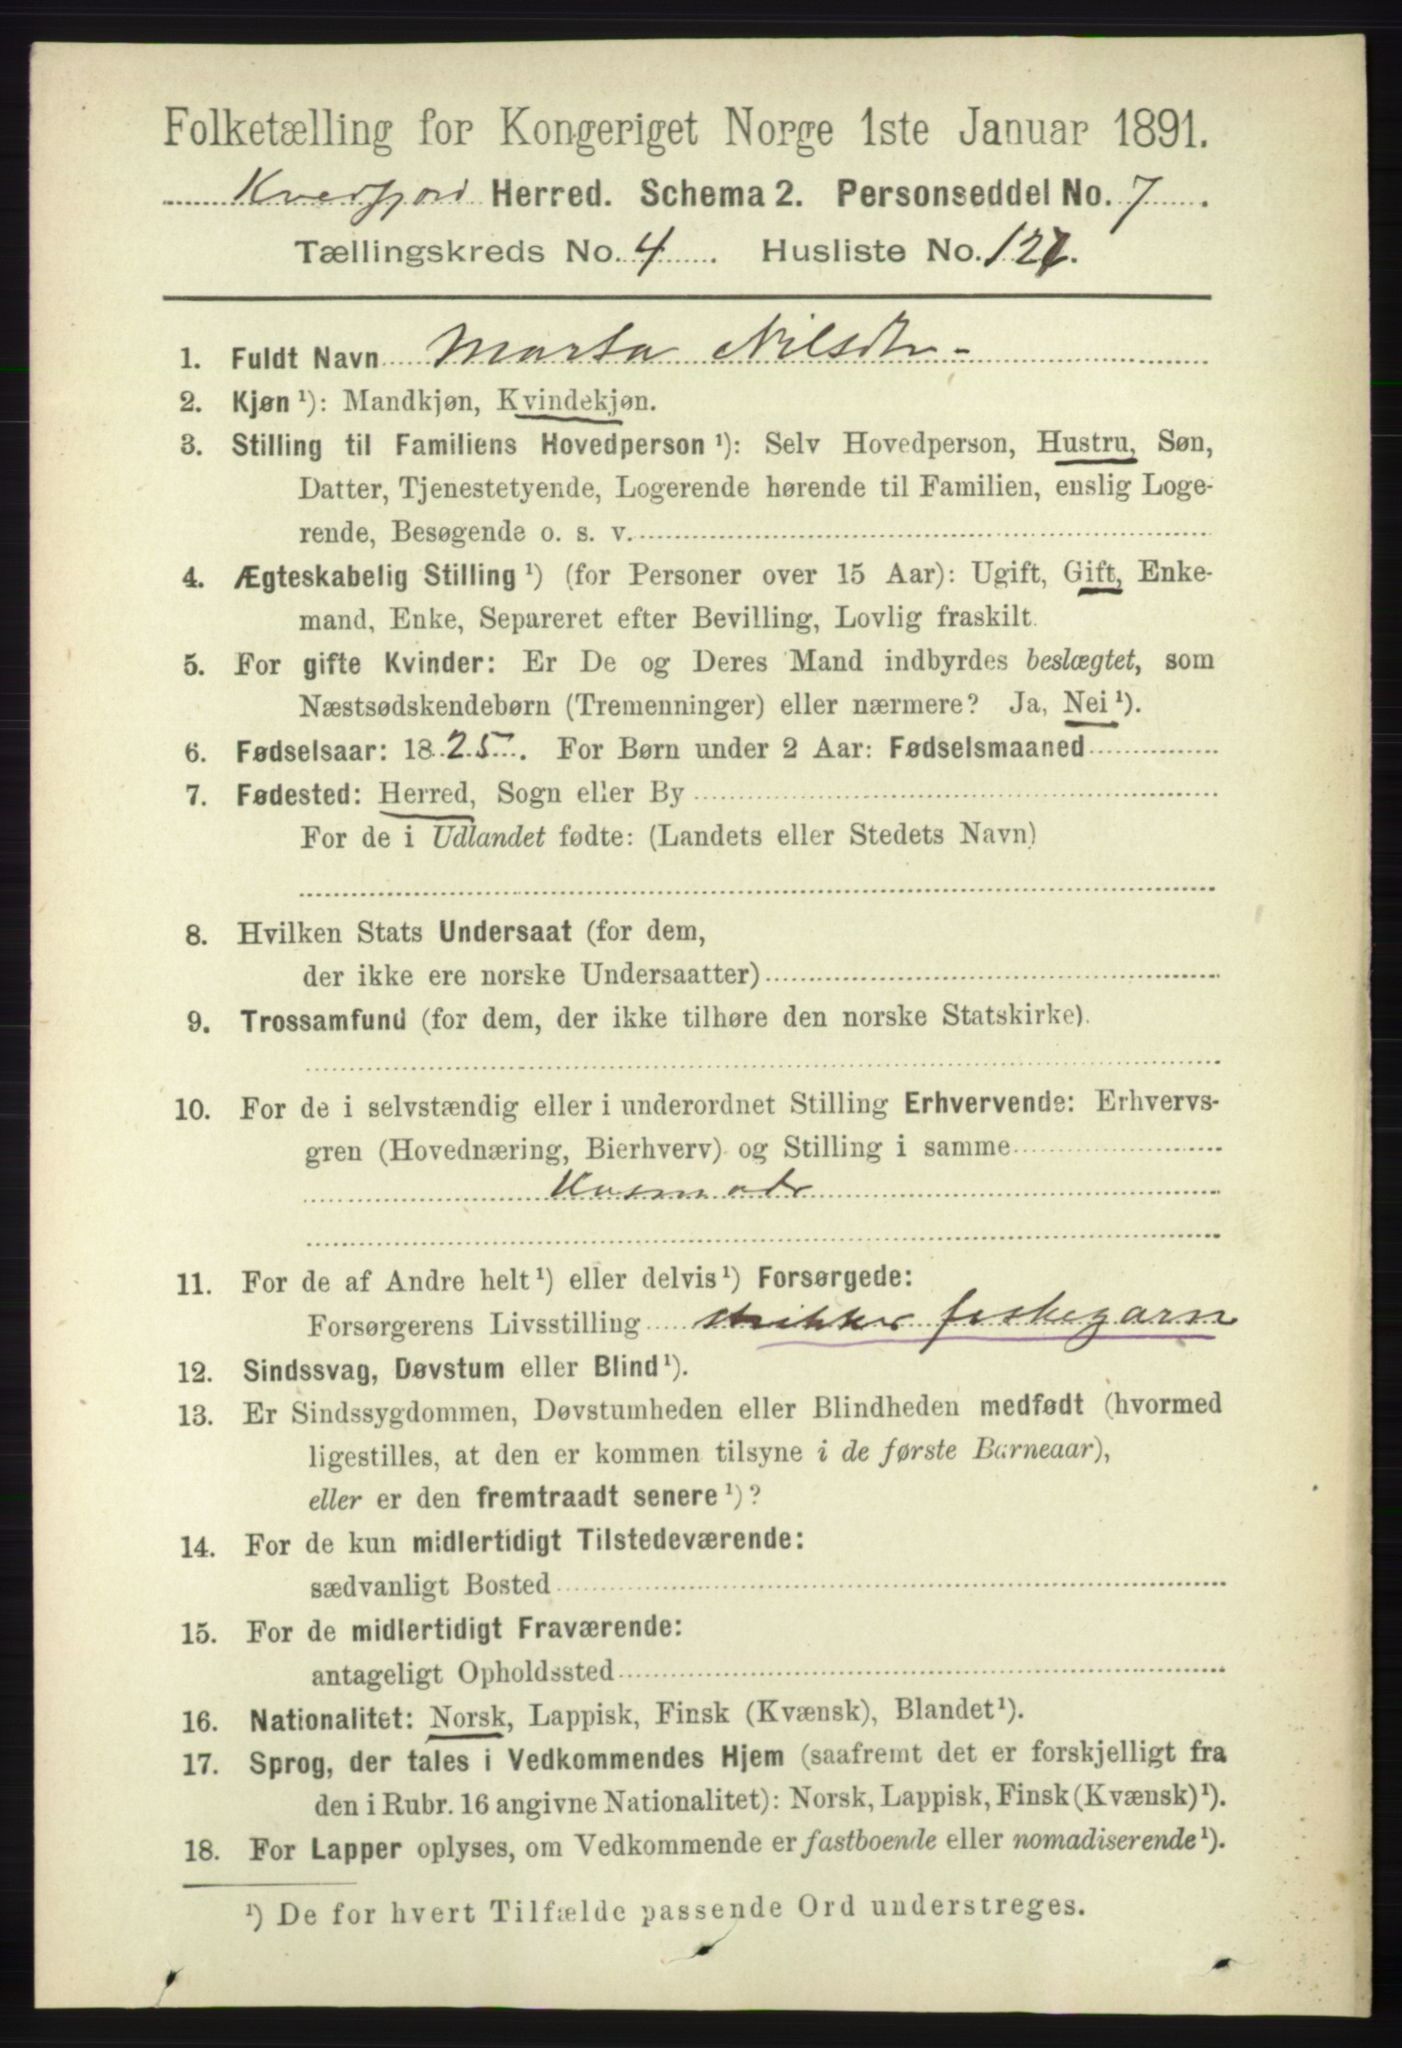 Folketælling for Kongeriget Norge 1ste Januar 1891.
Kvedfjord Herred. Schema 2. Personseddel No. 7.
Tællingskreds No. 4. Husliste No. 127.
1. Fuldt Navn Marta Nilsdtr
2. Kjøn ¹): Mandkjøn, Kvindekjøn.
3. Stilling til Familiens Hovedperson ¹): Selv Hovedperson, Hustru, Søn,
Datter, Tjenestetyende, Logerende hørende til Familien, enslig Loge-
rende, Besøgende o. s. v.
4. Ægteskabelig Stilling ¹) (for Personer over 15 Aar): Ugift, Gift, Enke-
mand, Enke, Separeret efter Bevilling, Lovlig fraskilt.
5. For gifte Kvinder: Er De og Deres Mand indbyrdes beslægtet, som
Næstsødskendebørn (Tremenninger) eller nærmere? Ja, Nei ¹).
6. Fødselsaar: 1825. For Børn under 2 Aar: Fødselsmaaned
7. Fødested: Herred, Sogn eller By
For de i Udlandet fødte: (Landets eller Stedets Navn)
8. Hvilken Stats Undersaat (for dem,
der ikke ere norske Undersaatter)
9. Trossamfund (for dem, der ikke tilhøre den norske Statskirke).
10. For de i selvstændig eller i underordnet Stilling Erhvervende: Erhvervs-
gren (Hovednæring, Bierhverv) og Stilling i samme
Husmodr
11. For de af Andre helt ¹) eller delvis ¹) Forsørgede:
Forsørgerens Livsstilling strikker fiskegarn
12. Sindssvag, Døvstum eller Blind ¹).
13. Er Sindssygdommen, Døvstumheden eller Blindheden medfødt (hvormed
ligestilles, at den er kommen tilsyne i de første Barneaar),
eller er den fremtraadt senere ¹)?
14. For de kun midlertidigt Tilstedeværende:
sædvanligt Bosted
15. For de midlertidigt Fraværende:
antageligt Opholdssted
16. Nationalitet: Norsk, Lappisk, Finsk (Kvænsk), Blandet ¹).
17. Sprog, der tales i Vedkommendes Hjem (saafremt det er forskjelligt fra
den i Rubr. 16 angivne Nationalitet): Norsk, Lappisk, Finsk (Kvænsk) ¹).
18. For Lapper oplyses, om Vedkommende er fastboende eller nomadiserende ¹).
¹) De for hvert Tilfælde passende Ord understreges.